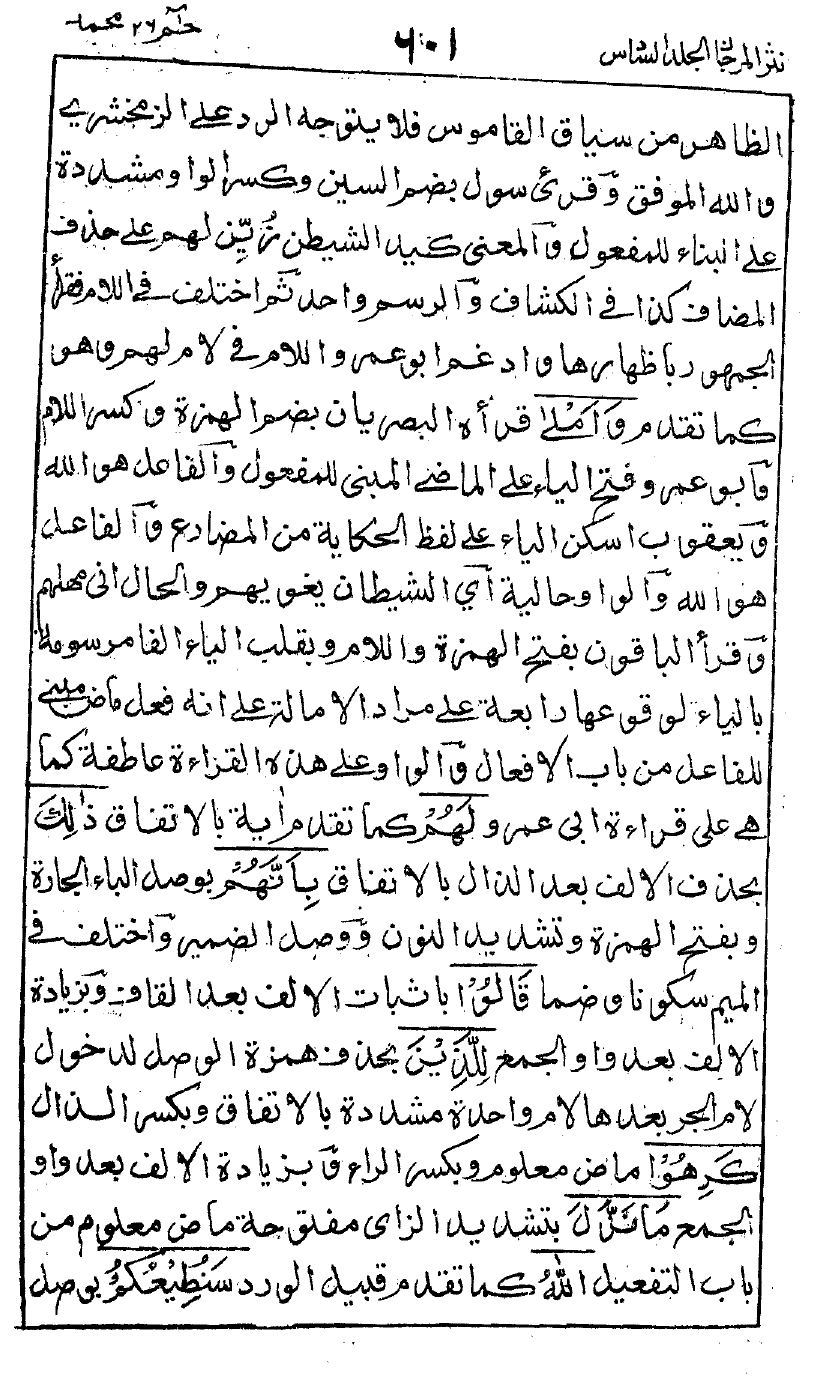 نثر المرجان المجلد السادس
٦٠١
حٰم ٢٦ محمد
الظاهر من سياق القاموس فلا يتوجه الرد على الزمخشري
والله الموفق وَقرئ سول بضم السين وكسر الواو مشددة
على البناء للمفعول وَالمعنى كيد الشيطن زُيِّن لهم على حذف
المضاف كذا في الكشاف وَالرسم واحد ثم اختلف في اللام فقرأ
الجمهور باظهارها وادغم ابو عمرو اللام في لام لهم وهو
كما تقدم وَاَمْلٰى قرأه البصريان بضم الهمزة وكسر اللام
وَابو عمرو فتح الياء على الماضي المبني للمفعول وَالفاعل هو الله
وَيعقوب اسكن الياء على لفظ الحكاية من المضارع وَالفاعل
هو الله وَالواو حالية أي الشيطان يغويهم والحال اني مهلهم
وَقرأ الباقون بفتح الهمزة واللام وبقلب الياء الفا مرسومة
بالياء لوقوعها رابعة على مراد الامالة على انه فعل ماض مبني
للفاعل من باب الافعال وَالواو على هذه القراءة عاطفة كما
هي على قراءة ابي عمرو لَهُمْ كما تقدم اٰية بالاتفاق ذٰلِكَ
بحذف الالف بعد الذال بالاتفاق بِاَنَّهُمْ بوصل الباء الجارة
وبفتح الهمزة وتشديد النون وَوصل الضمير وَاختلف في
الميم سكونا وضما قَالُوْا باثبات الالف بعد القاف وَبزيادة
الالف بعد واو الجمع لِلَّذِيْنَ بحذف همزة الوصل لدخول
لام الجر بعدها لام واحدة مشددة بالاتفاق وبكسر الذال
كَرِهُوْا ماض معلوم وبكسر الراء وَبزيادة الالف بعد واو
الجمع مَا نَزَّلَ بتشديد الزاى مفتوحة ماض معلوم من
باب التفعيل اللّٰهُ كما تقدم قبيل الورد سَنُطِيْعُكُمْ بوصل